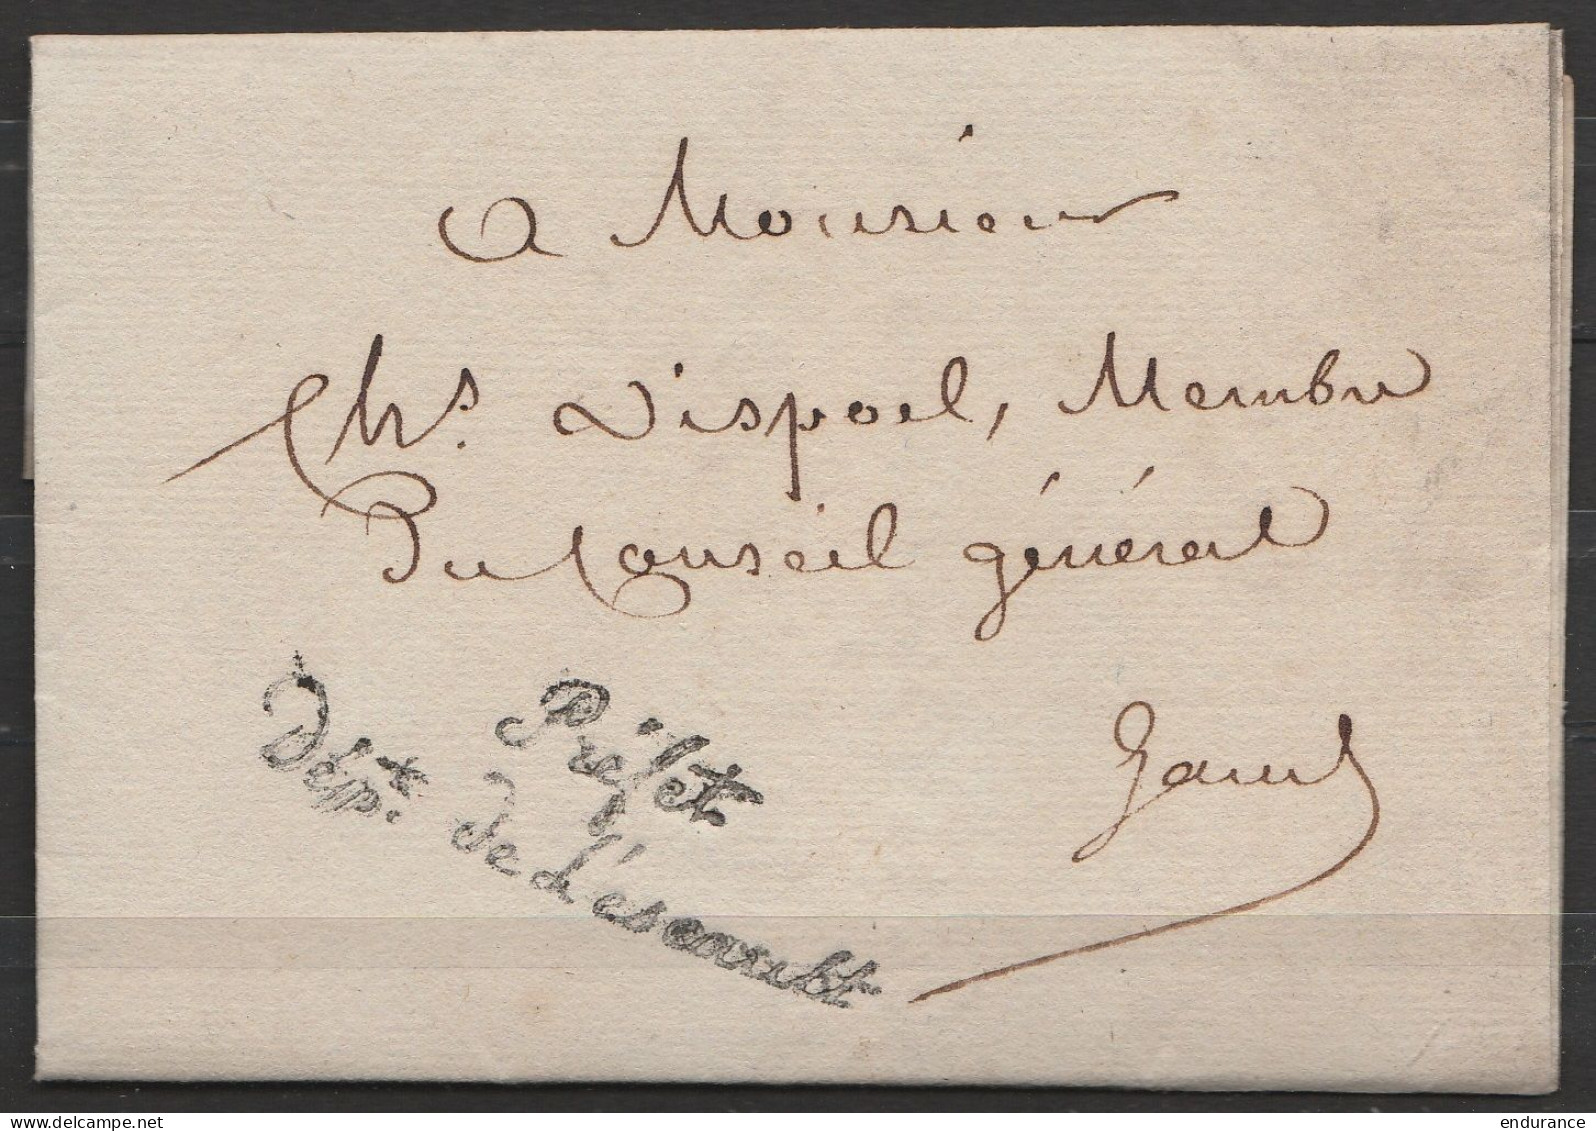 A Monsieur
Chs. Dispoel, Membre
Du Conseil général
Gand
Préfet
Dépt. de L'escault
delcampe.net
endurance